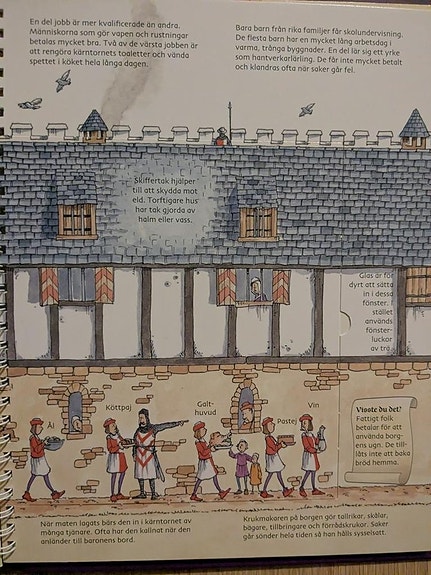 En del jobb är mer kvalificerade än andra.
Människorna som gör vapen och rustningar
betalas mycket bra. Två av de värsta jobben är
att rengöra kärntornets toaletter och vända
spettet i köket hela långa dagen.
Bara barn från rika familjer får skolundervisning.
De flesta barn har en mycket lång arbetsdag i
varma, trånga byggnader. En del lär sig ett yrke
som hantverkarlärling. De får inte mycket betalt
och klandras ofta när saker går fel.
Skiffertak hjälper
till att skydda mot
eld. Torftigare hus
har tak gjorda av
halm eller vass.
Glas är för
dyrt att sätta
in i dessa
fönster. I
stället
används
fönster-
luckor
av trä.
Ål
Köttpaj
Galt-
huvud
Pastej
Vin
Visste du det?
Fattigt folk
betalar för att
använda borg-
ens ugn. De till-
låts inte att baka
bröd hemma.
När maten lagats bärs den in i kärntornet av
många tjänare. Ofta har den kallnat när den
anländer till baronens bord.
Krukmakaren på borgen gör tallrikar, skålar,
bägare, tillbringare och förrådskrukor. Saker
går sönder hela tiden så han hålls sysselsatt.